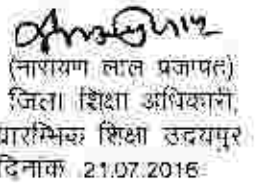 (नारायण लाल प्रजापत)
जिला शिक्षा अधिकारी,
प्रारम्भिक शिक्षा उदयपुर
दिनांक 21.07.2016